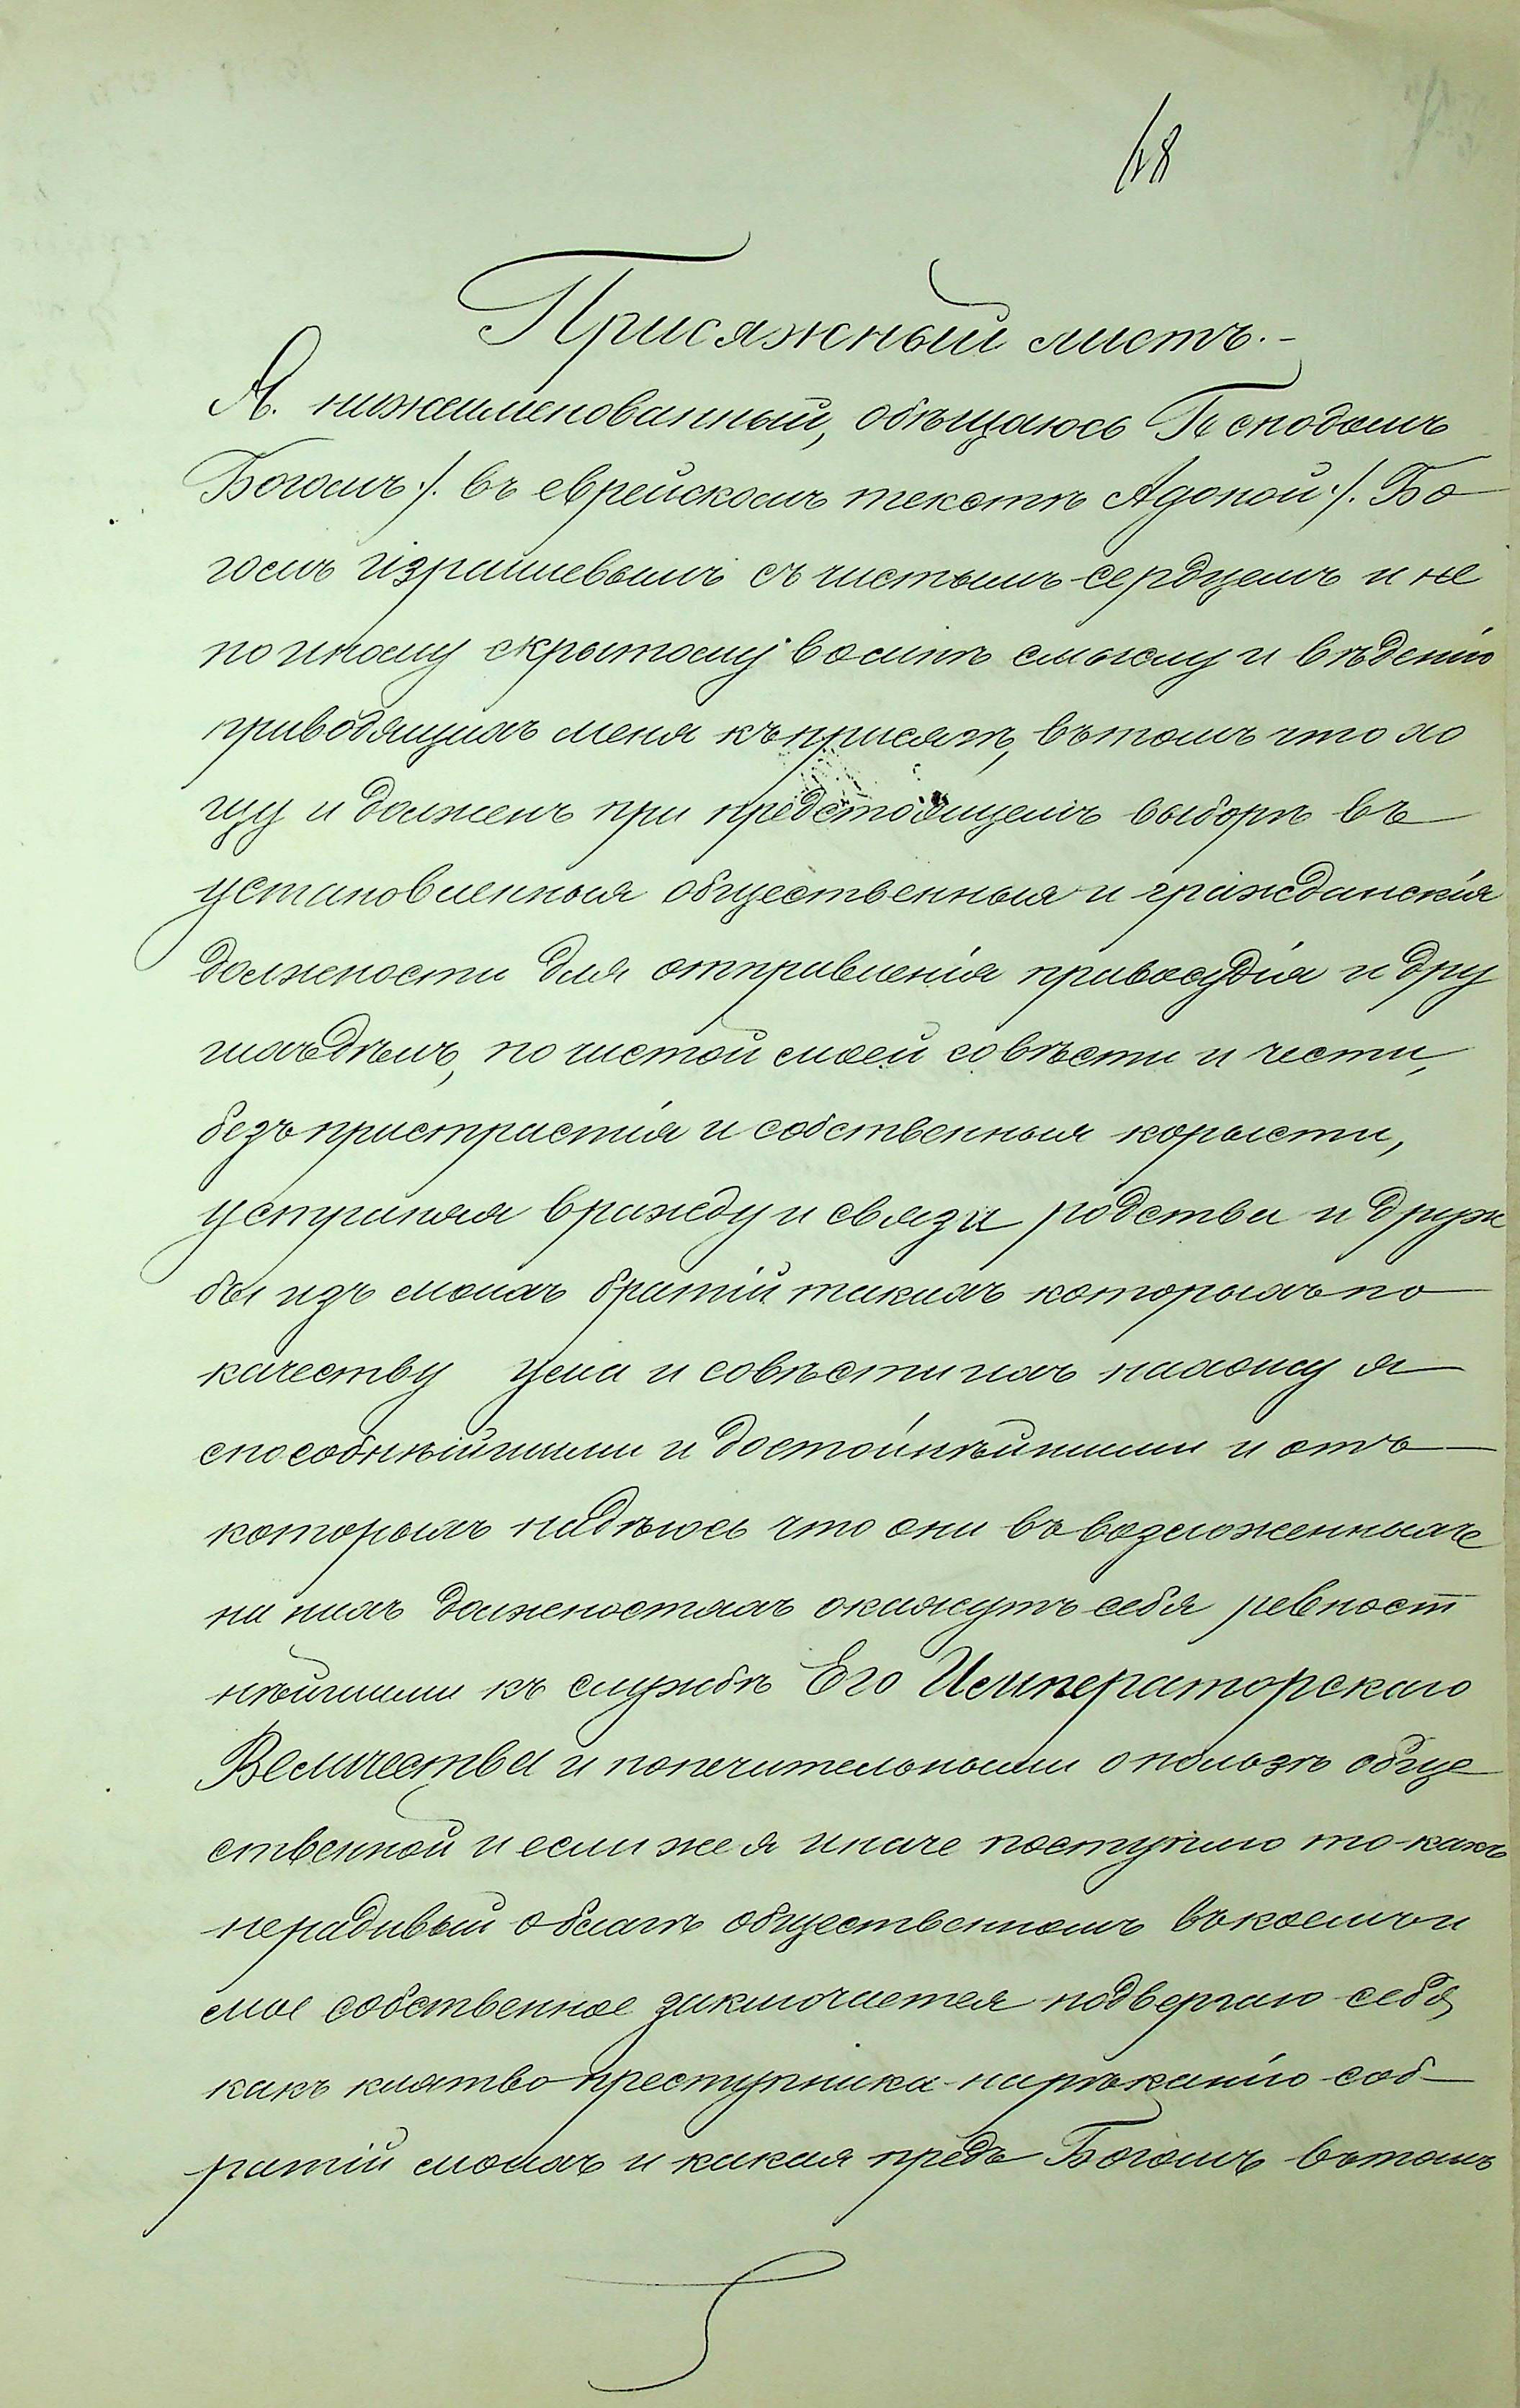 48
Присяжный листъ.-
Я. нижеименованный, обѣщаюсь Господомъ
Богомъ /. въ еврейскомъ текстѣ Адоной ./. Бо
гомъ Израилевымъ съ чистымъ сердцемъ и не
по иному скрытому во мнѣ смыслу и вѣденію
приводящихъ меня къ присягѣ, въ томъ что хо
щу и долженъ при предстоящемъ выборѣ въ
установленныя общественныя и гражданскія
должности для отправленія правосудія и дру
гихъ дѣлъ, по чистой моей совѣсти и чести,
безъ пристрастія и собственныя корысти,
устраняя вражду и связи родства и друж
бы изъ моихъ братій такихъ которыхъ по
качеству ума и совѣсти ихъ нахожу я
способнѣйшими и достойнѣйшими и отъ
которыхъ надѣюсь что они въ возложенныхъ
на нихъ должностяхъ окажутъ себя ревност
нѣйшими къ службѣ Его Императорскаго
Величества и попечительными о пользѣ обще
ственной и если же я иначе поступлю то какъ
нерадивый о благѣ общественномъ въ коемъ и
мое собственное заключается подвергаю себя
какъ клятво преступника нареканію соб
ратій моихъ и кикая предъ Богомъ въ томъ